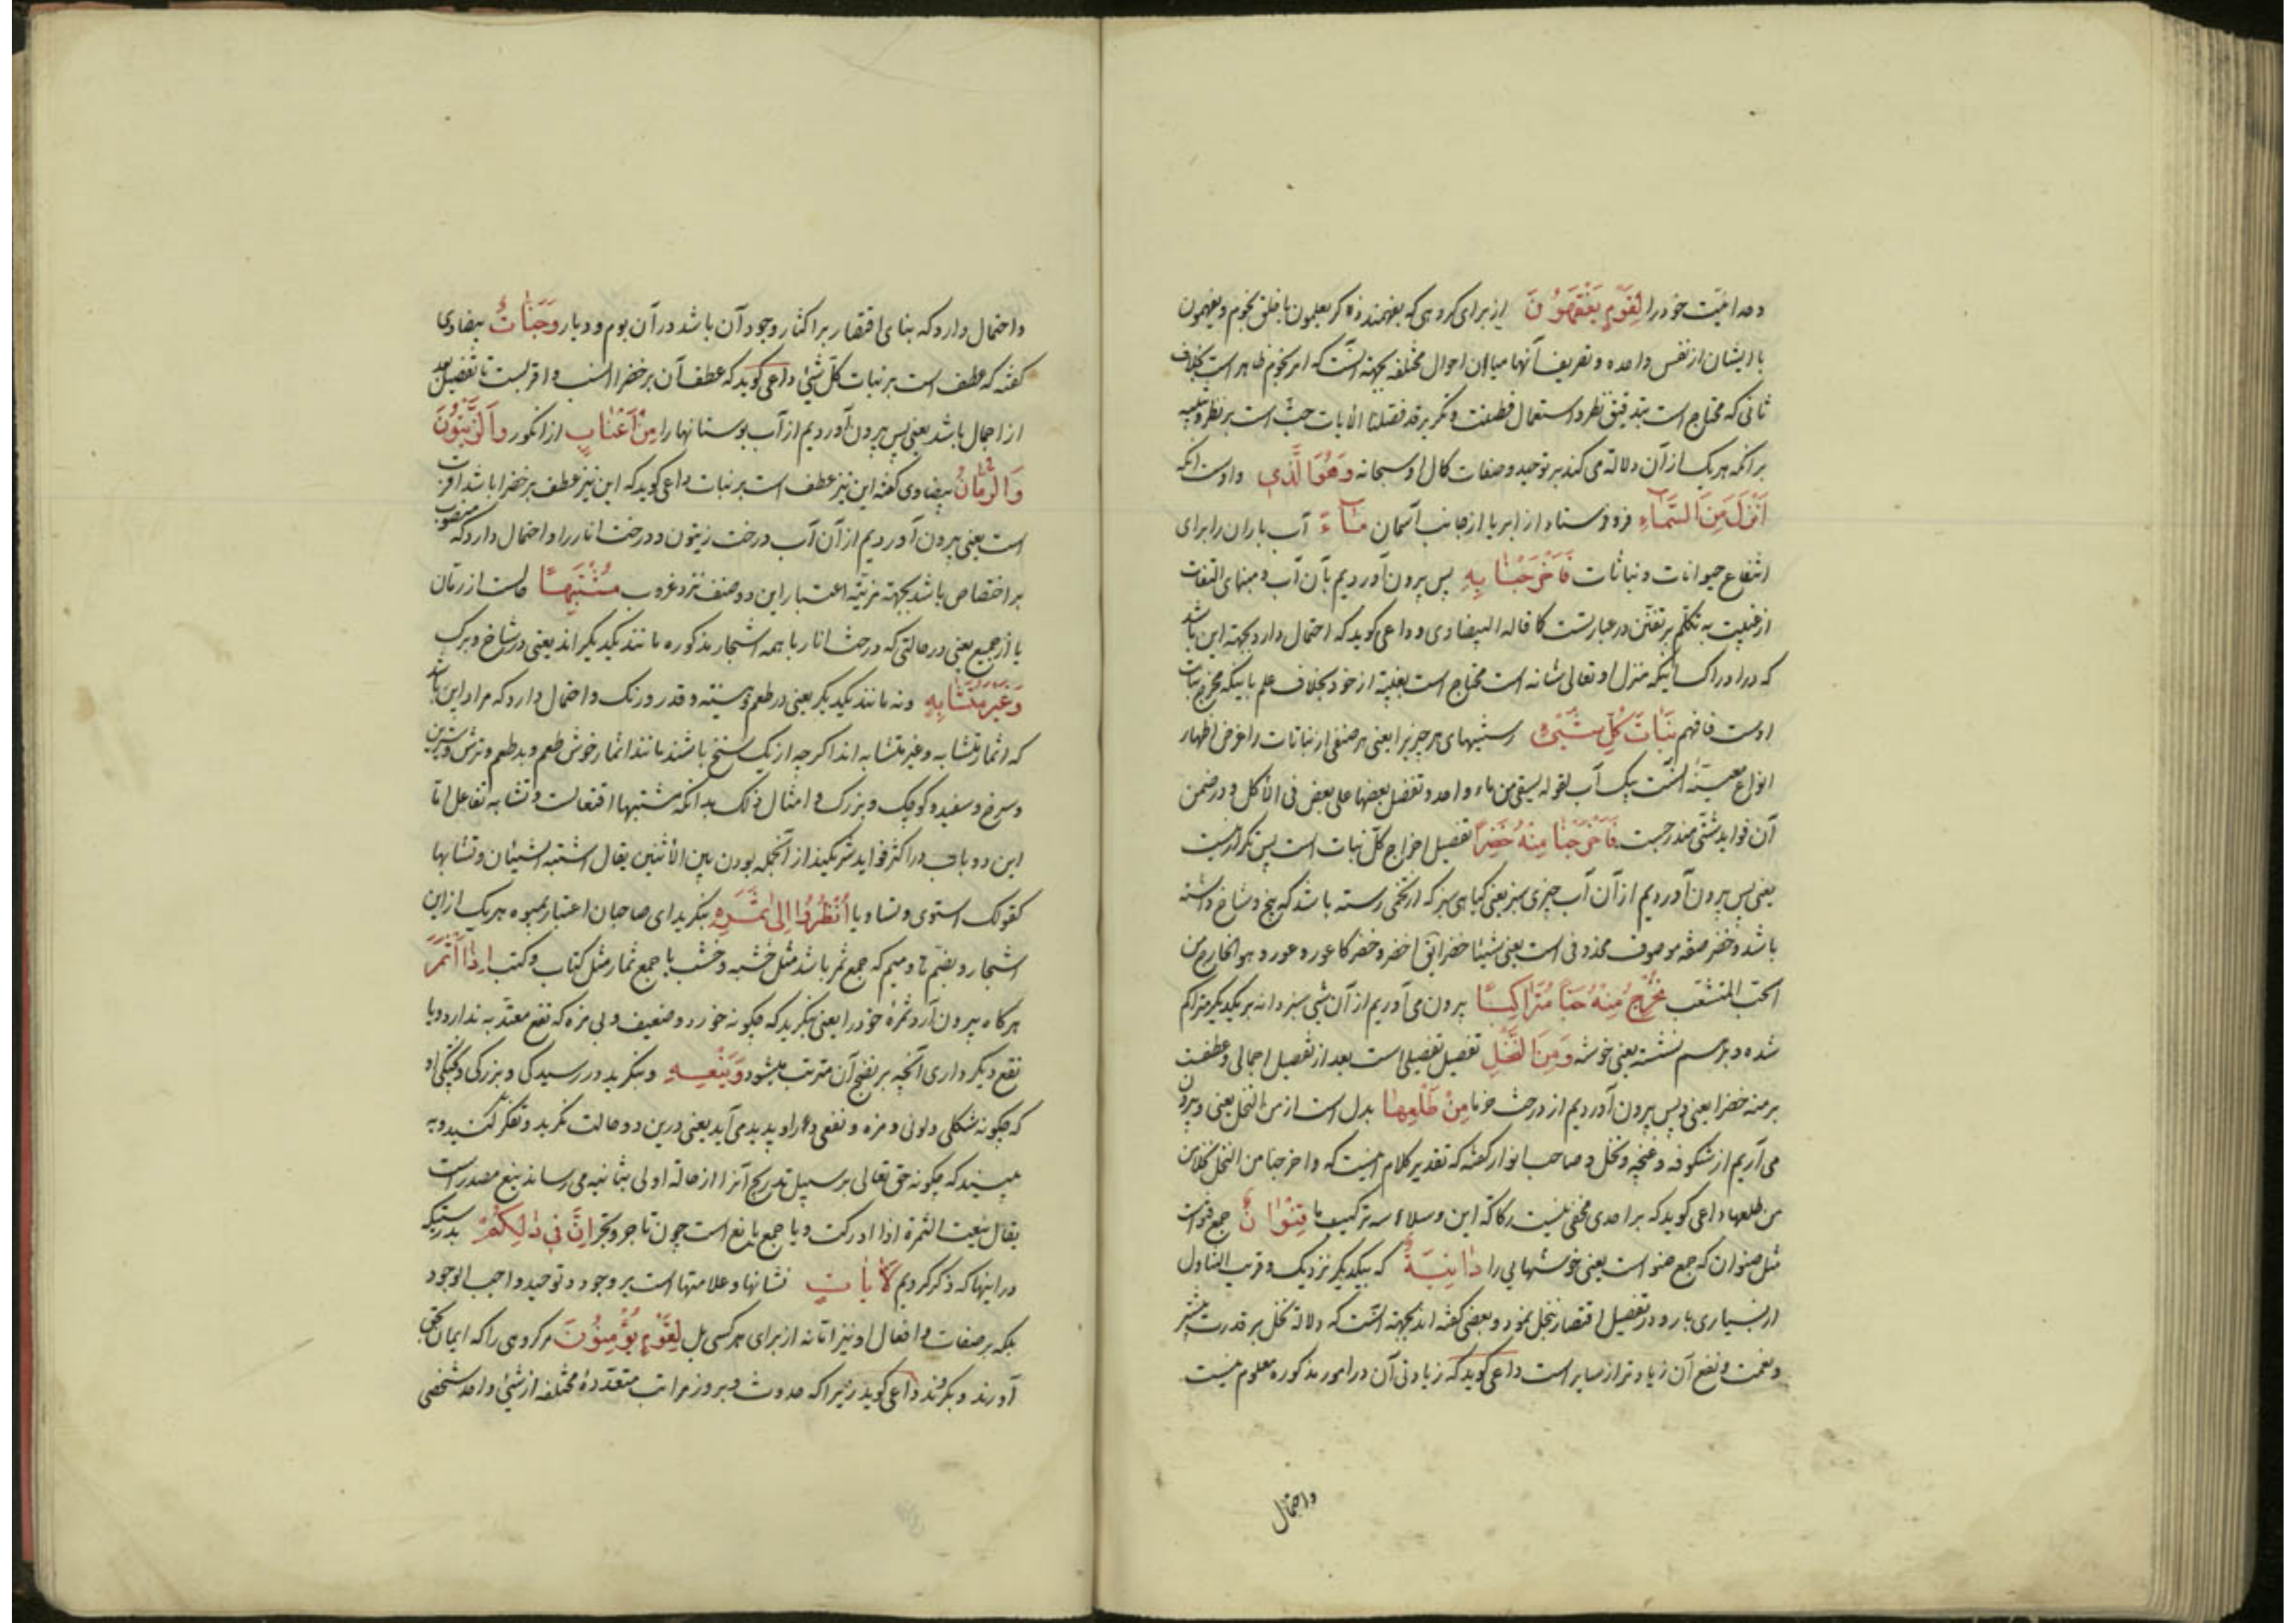 وحدانیت خود را لِقَوْمٍ يَفْقَهُونَ از برای کروهی که بفهمند ذکر یعلمون با خلق نجوم و یفقهون
با ایشان از نفس واحده و تصریف آنها میان احوال مختلفه بجهة آنست که امر نجوم ظاهر است بخلاف
ثانی که محتاج است بتدقیق نظر و استعمال فطنت و دیگر قد فصلنا الآیات حث است بر نظر و تنبیه
برانکه هر یک از آن دلالة می کند بر توحید و صفات کمال او سبحانه وَهُوَ الَّذِي و اوست آنکه
أَنْزَلَ مِنَ السَّمَاءِ فرو فرستاد از ابر یا از جانب آسمان مَاءً آب باران را برای
انتفاع حیوانات و نباتات فَأَخْرَجْنَا بِهِ پس بیرون آوردیم بآن آب و مبنای التفات
از غیبت به تکلم بر تفنن در عبارتست کما قاله البیضاوی و داعی کوید که احتمال دارد بجهة این باشد
که در ادراک اینکه منزل او تعالی شانه است محتاج است بغیبة از خود بخلاف علم باینکه مخرج نبات
اوست فافهم نَبَاتَ كُلِّ شَيْءٍ رستنیهای هر چیز را یعنی هر صنفی از نباتات را غرض اظهار
انواع معینه است بیک آب لقوله یسقی من ماء واحد و نفضل بعضها علی بعض فی الاکل و در ضمن
آن فواید شتی مندرجست فَأَخْرَجْنَا مِنْهُ خَضِرًا تفصیل اخراج کل نبات است پس تکرار نیست
یعنی پس بیرون آوردیم از آن آب چیزی سبز یعنی کیاهی سبز که از تخمی رسته باشد که بیخ و شاخ داشته
باشد و خضر صفه موصوف محذوفی است یعنی شیئا خضرا یق اخضر و خضر کاعور و عور و هو الخارج من
الحب المتشعب نُخْرِجُ مِنْهُ حَبًّا مُتَرَاكِبًا بیرون می آوریم از آن شی سبز دانه بر یکدیکر متراکم
شده و بر هم نشسته یعنی خوشه وَمِنَ النَّخْلِ تفصیل تفصیلی است بعد از تفصیل اجمالی و عطفست
بر منه خضرا یعنی و پس بیرون آوردیم از درخت خرما مِنْ طَلْعِهَا بدل است از من النخل یعنی و بیرون
می آریم از شکوفه و غنچه و نخل و صاحب انوار کفته که تقدیر کلام اینست که و اخرجنا من النخل نخلا من
من طلعها داعی کوید که بر احدی مخفی نیست رکاکة این و سلاسه ترکیب ما قِنْوَانٌ جمع قنو است
مثل صنوان که جمع صنو است یعنی خوشهایی را دَانِيَةٌ که بیکدیکر نزدیک و قریب التناول
از بسیاری بار و در تفصیل اقتصار بنخل نمود و بعضی کفته اند بجهة آنست که دلالة نخل بر قدرت بیشتر
و نعمت و نفع آن زیادتر از سایر است داعی کوید که زیادتی آن در امور مذکوره معلوم نیست
واحتمال
واحتمال دارد که بنای اقتصار بر اکثار وجود آن باشد در آن بوم و دیار وَجَنَّاتٍ بیضاوی
کفته که عطف است بر نبات کل شیء داعی کوید که عطف آن بر خضرا انسب و اقربست تا تفصیل بعد
از اجمال باشد یعنی پس بیرون آوردیم از آب بوستانها را مِنْ أَعْنَابٍ از انکور وَالزَّيْتُونَ
وَالرُّمَّانَ بیضاوی کفته این نیز عطف است بر نبات داعی کوید که این نیز عطف بر خضرا باشد اقرب
است یعنی بیرون آوردیم از آن آب درخت زیتون و درخت انار را و احتمال دارد که منصوب
بر اختصاص باشد بجهة مزیة اعتبار این دو صنف نزد عرب مُشْتَبِهًا حالست از رمان
یا از جمیع یعنی در حالتی که درخت انار با همه اشجار مذکوره مانند یکدیکر اند یعنی در شاخ و برک
وَغَيْرَ مُتَشَابِهٍ و نه مانند یکدیکر یعنی در طعم و هیئته و قدر و رنک و احتمال دارد که مراد این باشد
که اثمار متشابه و غیر متشابه اند اکر چه از یک سنخ باشند مانند انمار خوش طعم و بد طعم و ترش و شیرین
و سرخ و سفید و کوچک و بزرک و امثال ذلک بدانکه مشتبها افتعالست و تشابه تفاعل اما
این دو باب در اکثر فواید شریکند از آنجمله بودن بین الاثنین یقال اشتبه الشیئان و تشابها
کقولک استوی و تساویا أُنْظُرُوا إِلَى ثَمَرِهِ بنکرید ای صاحبان اعتبار بمیوه هر یک از این
اشجار و بضم ث و میم که جمع ثمر باشد مثل خشبه و خشب یا جمع ثمار مثل کتاب و کتب إِذَا أَثْمَرَ
هر کاه بیرون آرد ثمره خود را یعنی بنکرید که چکونه خورد و ضعیف و بی مزه که نفع معتد به ندارد و یا
نفع دیکر دارد آنچه بر نضج آن مترتب میشود وَيَنْعِهِ و بنکرید در رسیدکی و بزرکی و پختکی او
که چکونه شکلی و لونی و مزه و نفعی در او پدید می آید یعنی درین دو حالت نکرید و تفکر کنید و به
ببینید که چکونه حق تعالی بر سبیل تدریج آنرا از حالة اولی بثانیه می رساند ینع مصدر است
یقال ینعت الثمرة اذا ادرکت و یا جمع یانع است چون تاجر و تجر إِنَّ فِي ذَلِكُمْ بدرستیکه
در اینها که ذکر کردیم لَآيَاتٍ نشانها و علامتها است بر وجود و توحید واجب الوجود
بلکه بر صفات و افعال او نیز اما نه از برای هر کسی بل لِقَوْمٍ يُؤْمِنُونَ مر کروهی را که ایمان بحق
آورند و بکروند داعی کوید زیرا که حدوث و بروز مراتب متعددهٔ مختلفه از شیء واحد شخصی